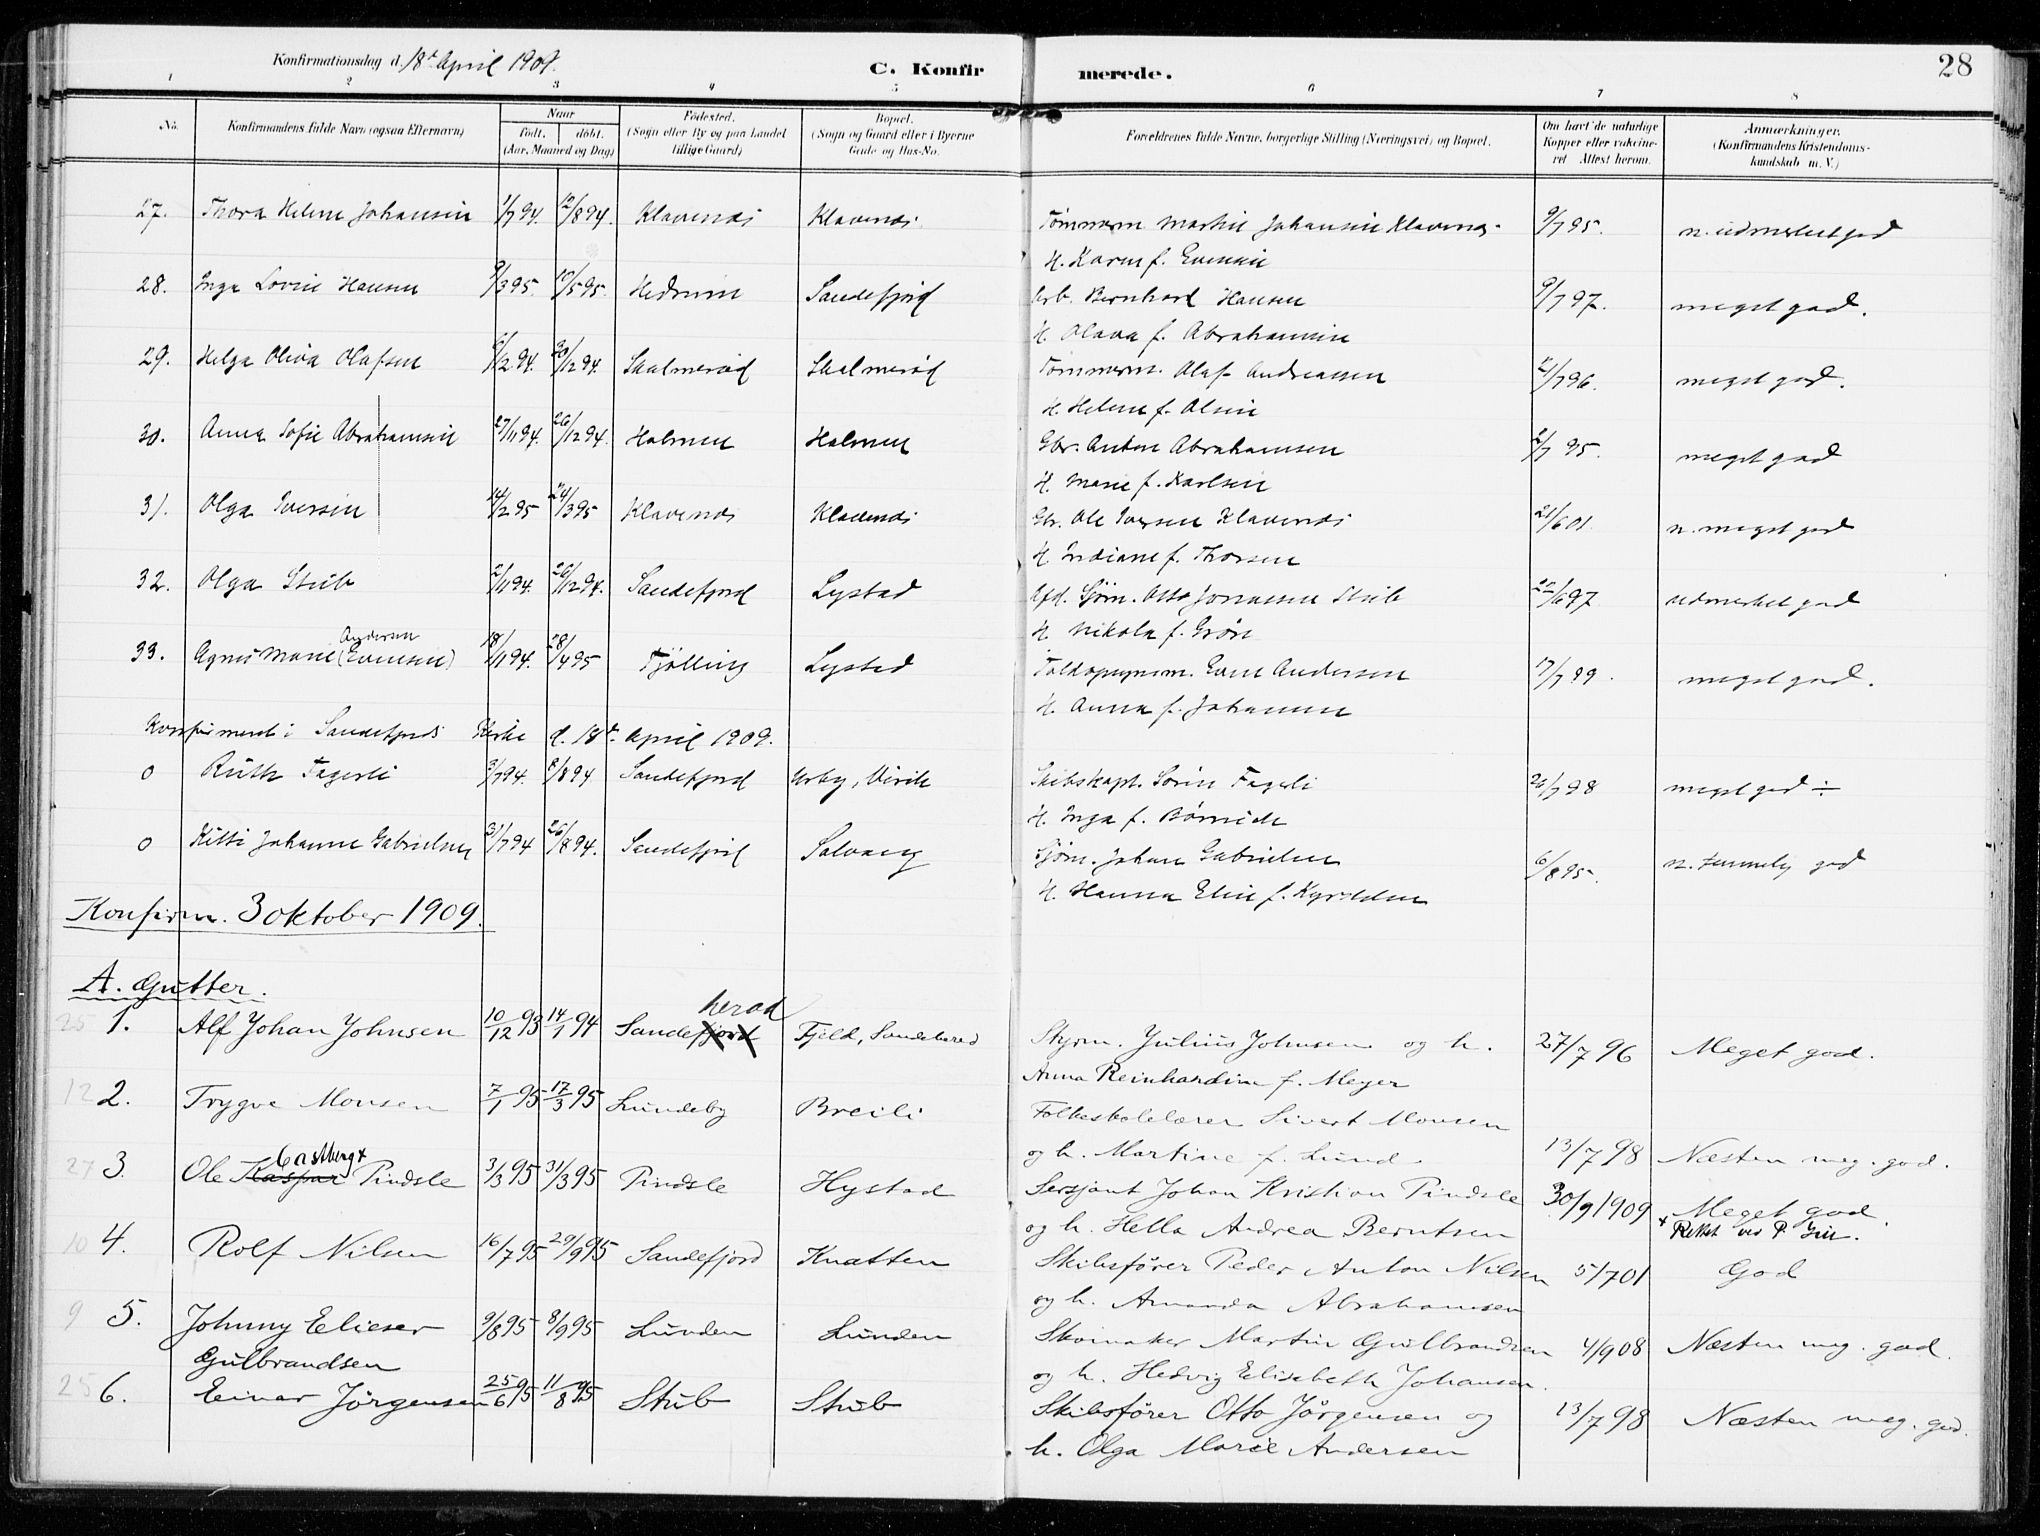 Konfirmationsdag d. 18de April 1909.
C. Konfir merede.
28
1 2 3 4 5 6 7 8
No.
Konfirmandens fulde Navn (ogsaa Efternavn)
Naar
født. døbt.
(Aar, Maaned og Dag)
Fødested.
(Sogn eller By og paa Landet tillige Gaard)
Bopæl.
(Sogn og Gaard eller i Byerne Gade og Hus-No.
Forældrenes fulde Navne, borgerlige Stilling (Næringsvei) og Bopæl.
Om havt de naturlige Kopper eller vakcineret. Attest herom.
Anmærkninger.
(Konfirmandens Kristendomskundskab m. V.)
27. Thora Helene Johansen 1/7 94. 12/8 94. Klavenæs Klavenæs Tømmerm Martin Johansen Klavenæs 9/7 95. n. udmerket god
H. Karen f. Evensen
28. Inga Lovise Hansen 9/3 95. 10/5 95. Hedrum Sandefjord Arb. Bernhard Hansen 9/7 97. meget god.
H. Olava f. Abrahamsen
29. Helga Oliva Olafsen 6/12 94. 30/12 94. Skalmerød Skalmerød Tømmerm. Olaf Andreassen /7 96. meget god.
H. Helene f. Olsen
30. Anna Sofie Abrahamsen 27/11 94. 26/12 94. Holmen Holmen Gbr. Anton Abrahamsen 2/7 95. meget god
H. Marie f. Karlsen
31. Olga Iversen 14/2 95 24/3 95 Klavenæs Klavenæs Gbr. Ole Iversen Klavenæs 21/6 01. n. meget god
H. Indiane f. Thorsen
32. Olga Stub 2/11 94. 26/12 94. Sandefjord Lystad Afd. Sjøm. Otto Jonassen Stub 22/6 97 udmerket god
H. Nikola f. Grøn
Andersen
33. Agnes Marie (Evensen) 18/11 94. 28/4 95 Tjølling Lystad Toldopsynsm. Even Andersen 17/7 99. meget god.
H. Anna f. Johansen
Konfirmeret i Sandefjords Kirke d. 18de April 1909.
0 Ruth Fagerli 3/7 94. 8/8 94 Sandefjord Skibskapt. Søren Fagerli 20/7 98 meget god ÷
H. Inga f.
0 Kitti Johanne Gabrielsen 31/7 94 26/8 94. Sandefjord Solvang Sjøm. Johan Gabrielsen 6/8 95. n. temmelig god
H. Hanna Elise f.
Konfirm. 3 oktober 1909.
A. Gutter.
herad
25 1. Alf Johan Johnsen 10/12 93 14/1 94 Sandefjord Fjeld, Sandeherad Styrm. Julius Johnsen og h. 27/7 96 Meget god.
Anna Reinhardine f. Meyer
12 2. Trygve Monsen 7/1 95 17/3 95 Lundeby Breili Folkeskolelærer Sivert Monsen
og h. Martine f. Lund. 13/7 98 Næsten meg. god.
Castberg x
27 3. Ole Kaspar Pindsle 3/3 95 31/3 95 Pindsle Hystad Sersjant Johan Kristian Pindsle 30/9 1909 Meget god.
og h. Hella Andrea Berntsen x Rettet ved P.
10 4. Rolf Nilsen 16/7 95 29/9 95 Sandefjord Knatten Skibsfører Peder Anton Nilsen 5/7 01 God
og h. Amanda Abrahamsen
9 5. Johnny Elieser 9/8 95 8/9 95 Lunden Lunden Skomaker Martin Gulbrandsen 4/9 08 Næsten meg. god.
Gulbrandsen og h. Hedvig Elisabeth Johansen.
25 6. Einar Jørgensen 25/6 95 11/8 95 Stub Stub Skibsfører Otto Jørgensen og 13/7 98 Næsten meg. god.
h. Olga Marie Andersen